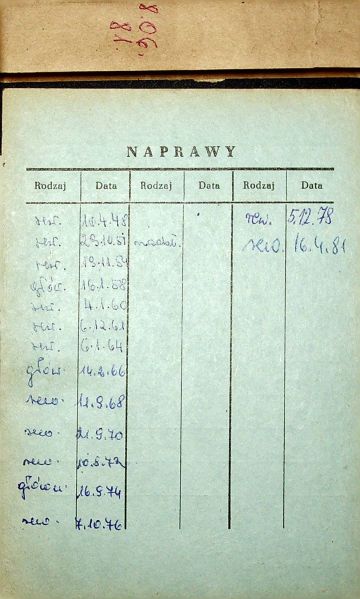 8.06.
81
NAPRAWY
Rodzaj Data Rodzaj Data Rodzaj Data
rew. 10.4.48 rew. 5.12.78
rew. 23.10.51 rew. 16.4.81
rew. 19.11.54
głów. 16.1.58
rew. 4.1.60
rew. 6.12.61
rew. 6.1.64
głów. 14.2.66
rew. 11.9.68
rew. 21.9.70
rew. 10.8.72
główn. 16.9.74
rew. 7.10.76